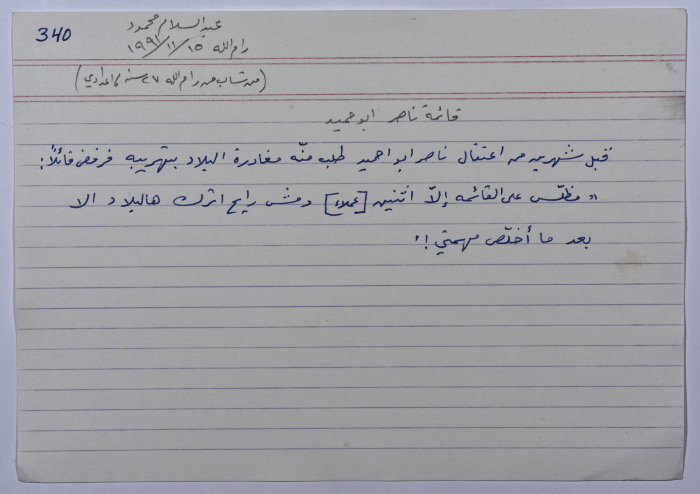 340
عبد السلام محمود
رام الله ١٥/١١/١٩٩١
(من شاب من رام الله ٢٧ سنة اعدادي)
قائمة ناصر ابو حميد
قبل شهرين من اعتقال ناصر ابو احميد طلب منّه مغادرة البلاد بتهريبه فرفض قائلاً:
"مظلّش على القائمه إلّا اثنين [عملاء] ومش رايح اترك هالبلاد الا
بعد ما أخلّص مهمتي!"